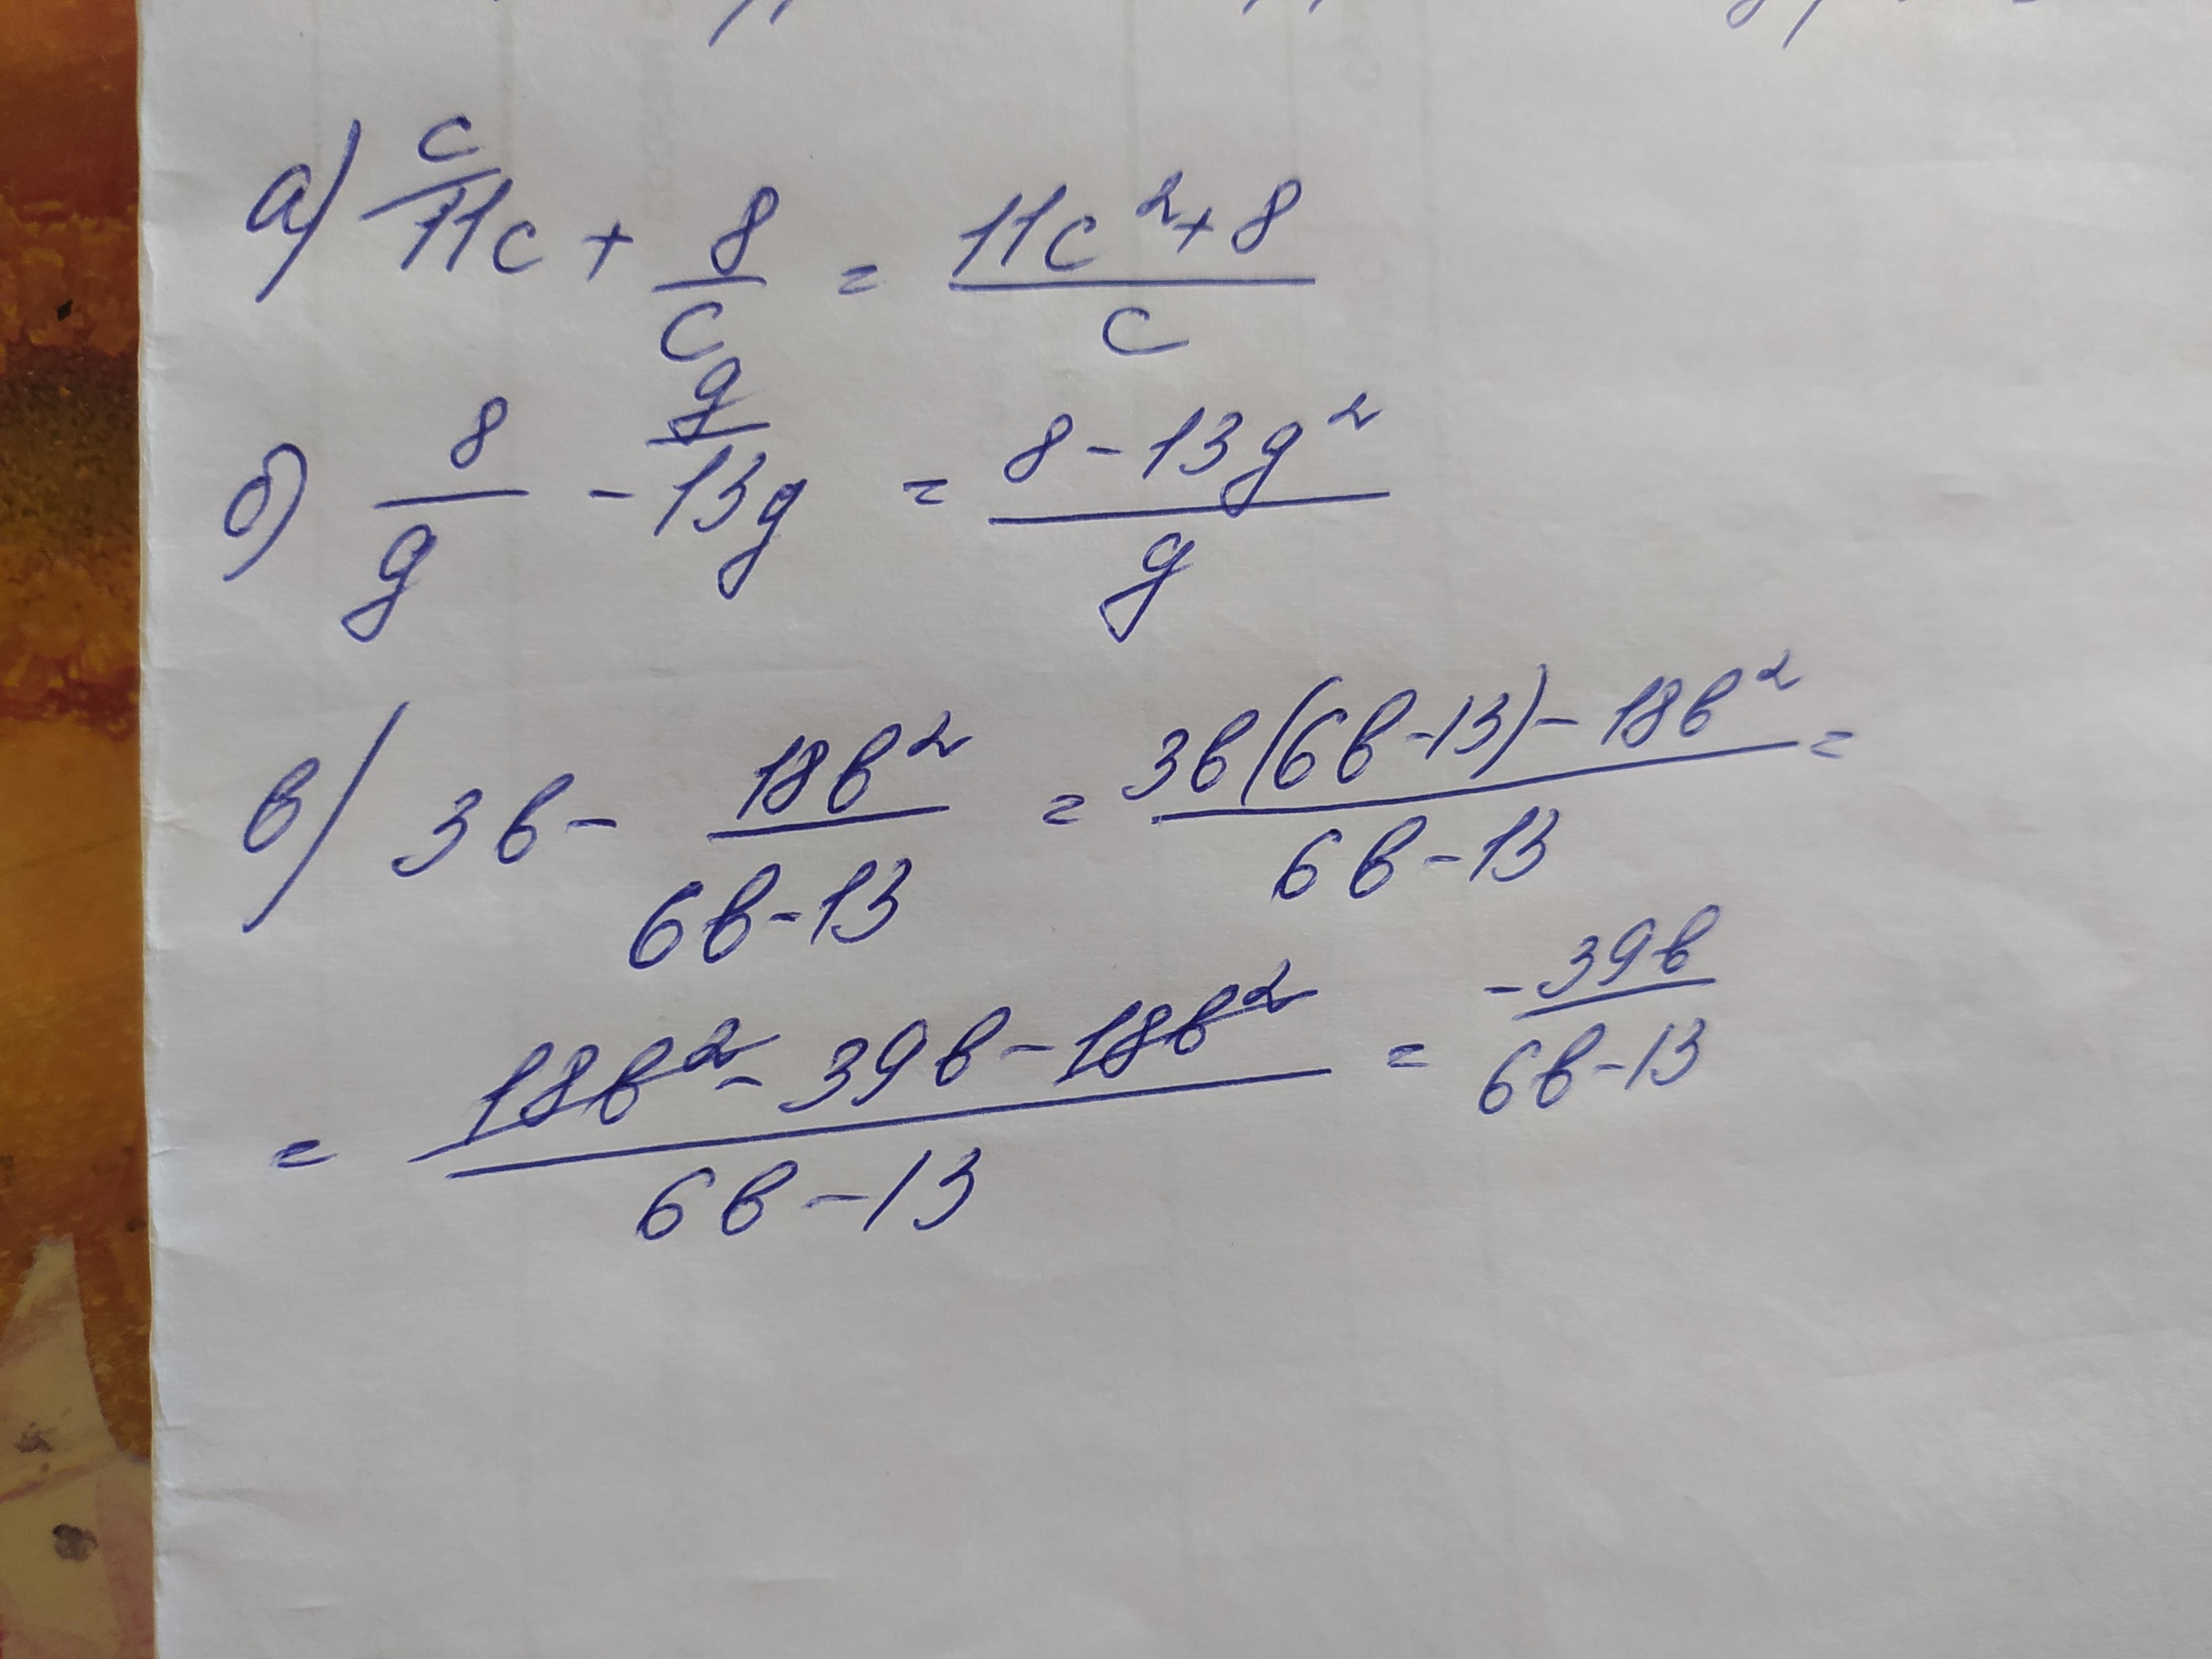 а) c/ 11c + 8/c = (11c² + 8)/c
б) 8/g - g/ 13g = (8 - 13g²)/g
в) 3в - 18в²/(6в - 13) = (3в(6в - 13) - 18в²)/(6в - 13) =
= (18в² - 39в - 18в²)/(6в - 13) = -39в/(6в - 13)